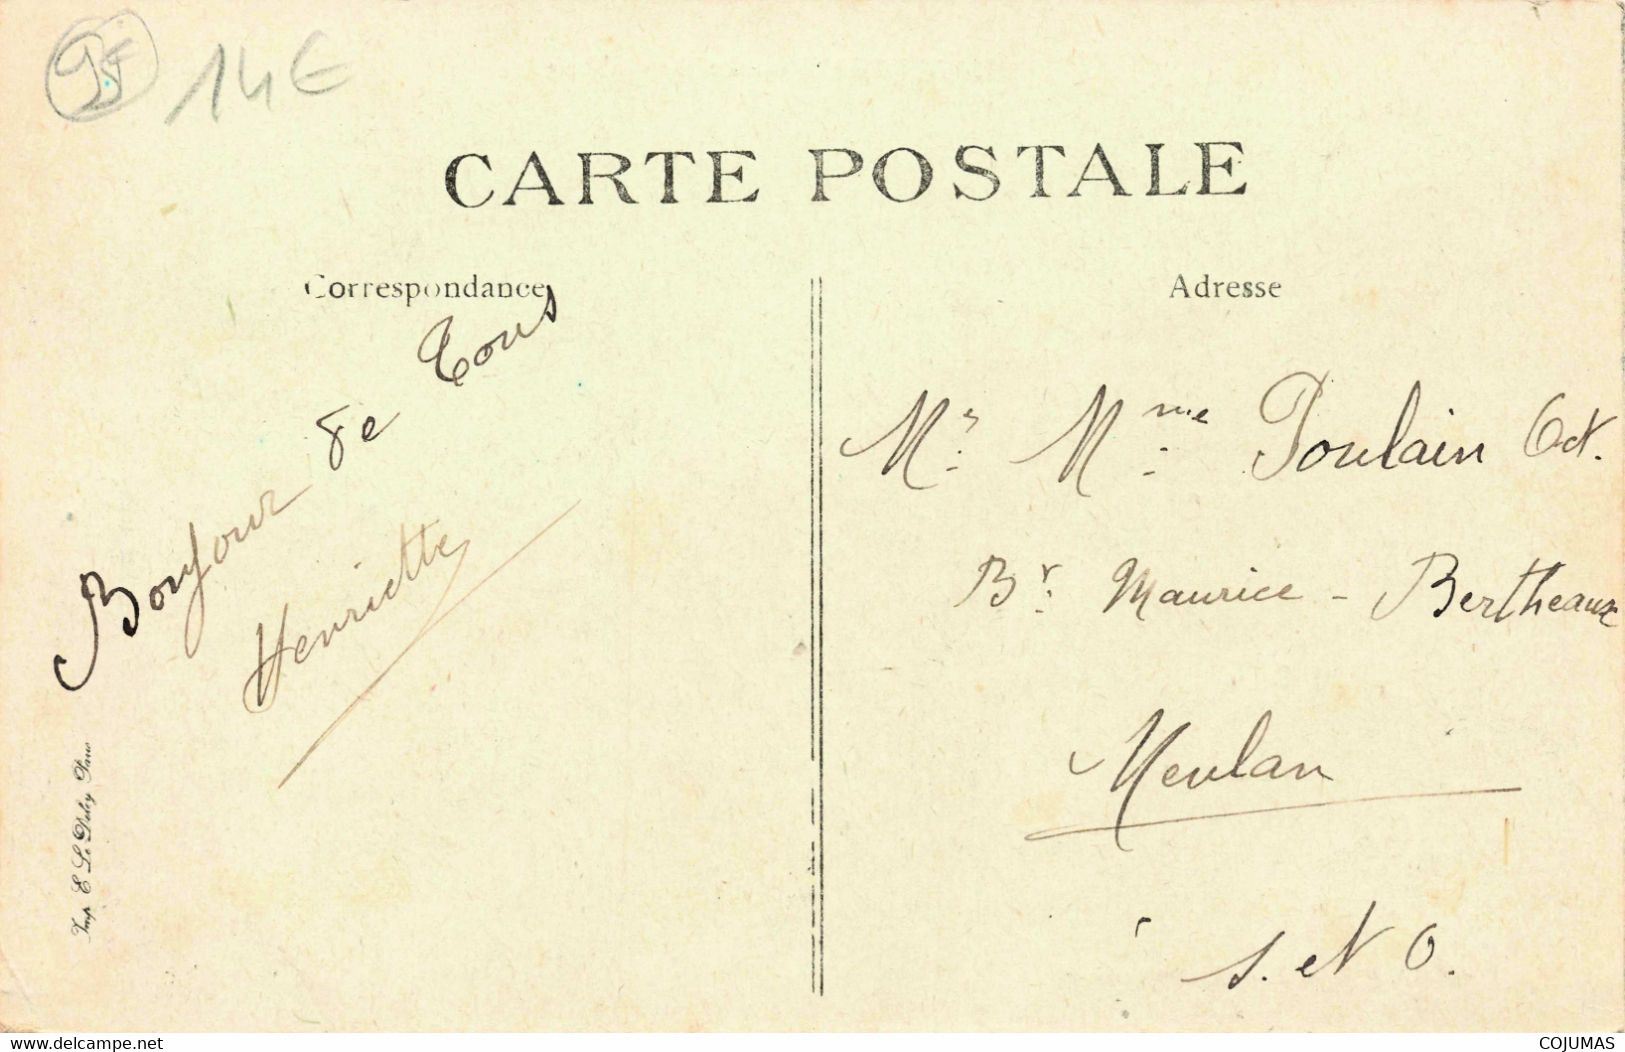 95 14€
CARTE POSTALE
Correspondance
Adresse
Bonjour de Tous
Henriette
Mr Mme Poulain Oct.
Br Maurice - Bertheaux
Meulan
S. et O.
Imp. E. Le Deley Paris
www.delcampe.net
COJUMAS